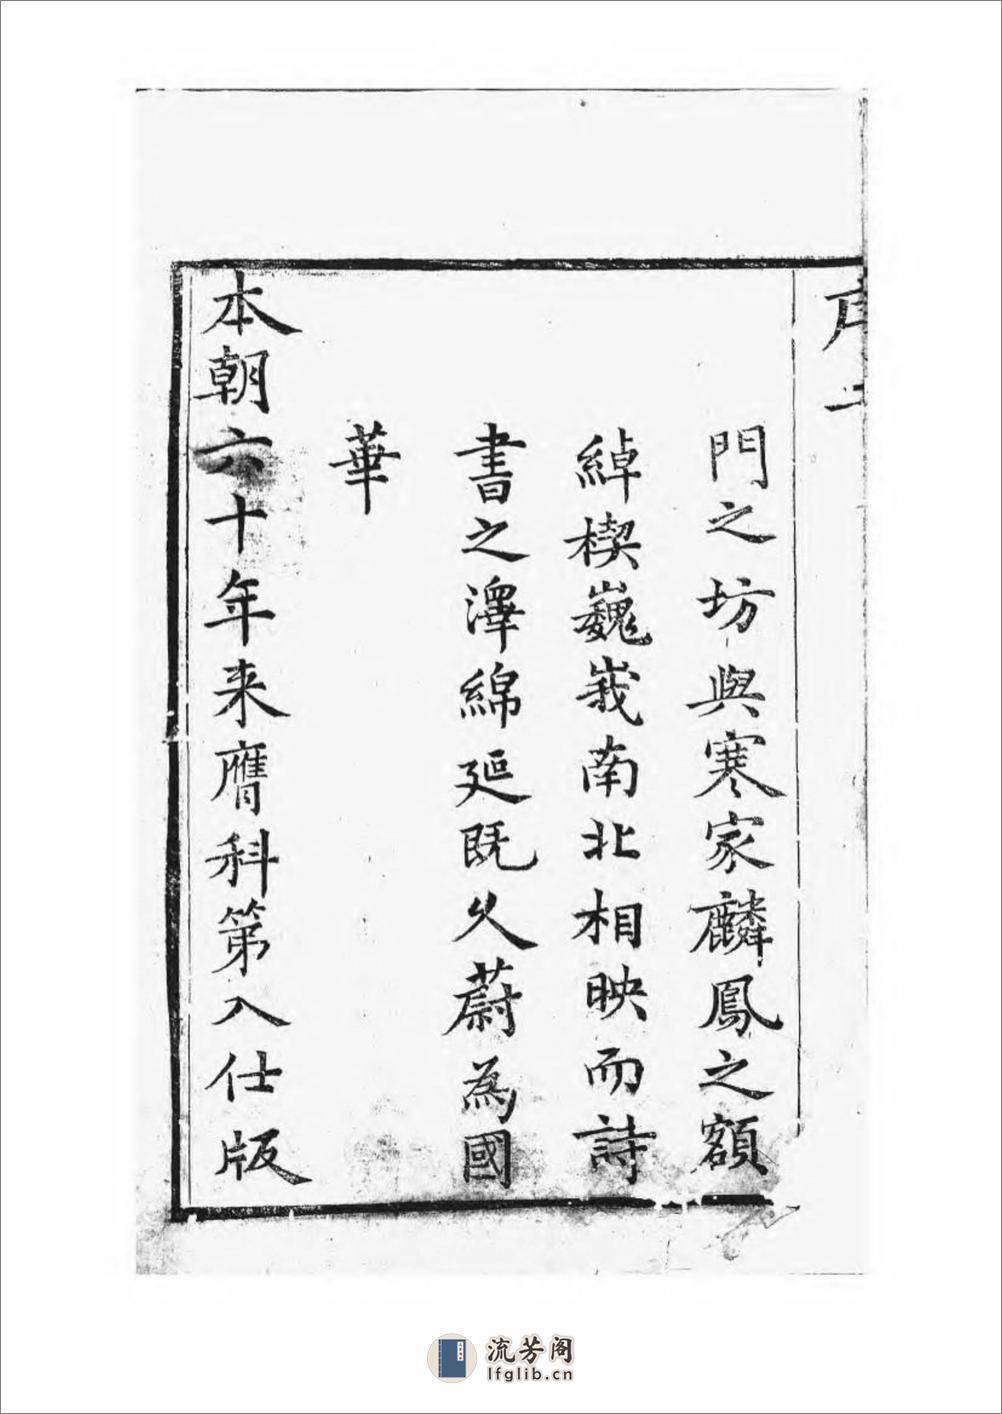 門之坊與寒家麟鳳之額
綽楔巍峩南北相映而詩
書之澤綿延既久蔚為國
華
本朝六十年来膺科第入仕版
流芳阁
lfglib.cn